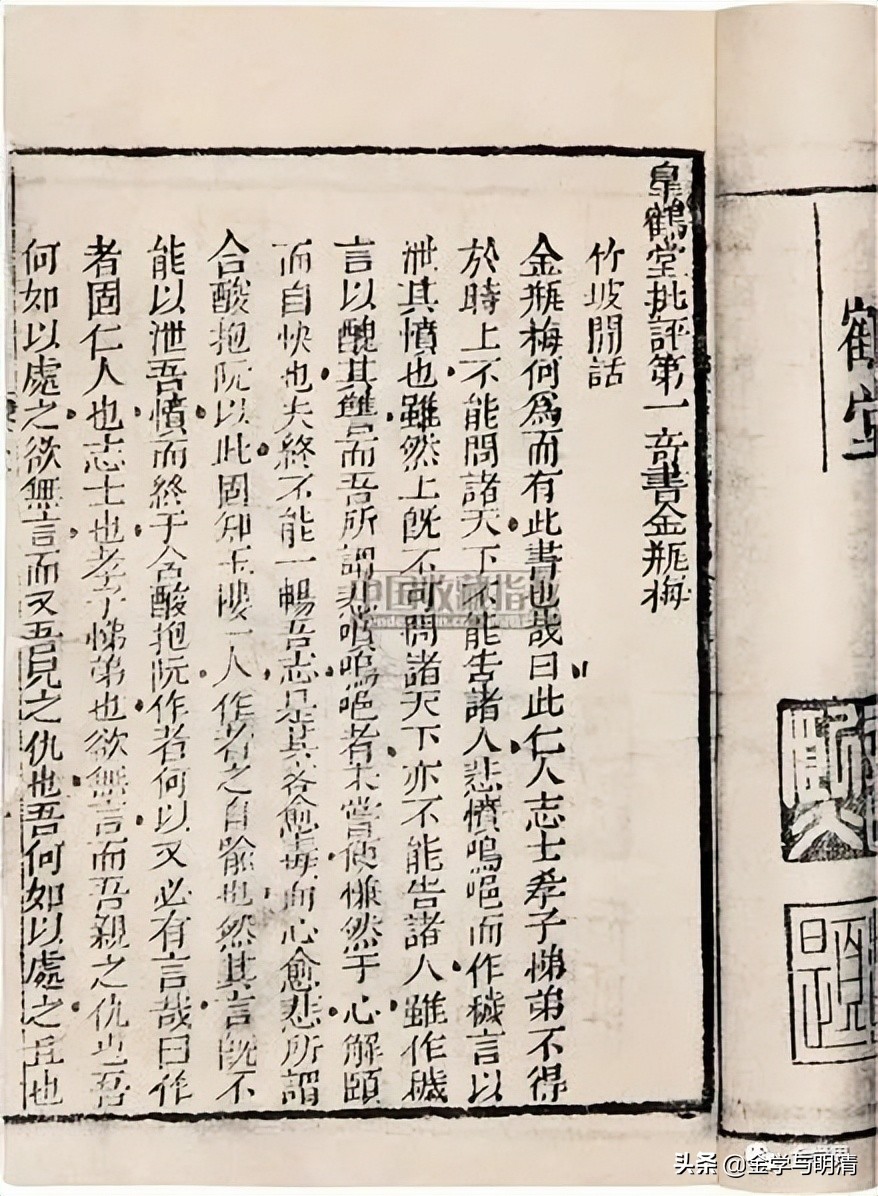 皐鶴堂批評第一奇書金瓶梅
竹坡閒話
金瓶梅何為而有此書也哉曰此仁人志士孝子悌弟不得
於時上不能問諸天下不能告諸人悲憤嗚唈而作穢言以
泄其憤也雖然上既不可問諸天下亦不能告諸人雖作穢
言以醜其讐而吾所謂悲憤嗚唈者未嘗便慊然于心解頤
而自快也夫終不能一暢吾志是其言愈毒而心愈悲所謂
含酸抱阮以此固知玉樓一人作者之自喻也然其言既不
能以泄吾憤而終于含酸抱阮作者何以又必有言哉曰作
者固仁人也志士也孝子悌弟也欲無言而吾親之仇也吾
何如以處之欲無言而又吾兄之仇也吾何如以處之且也
鶴堂
中国收藏指南
头条 @金学与明清